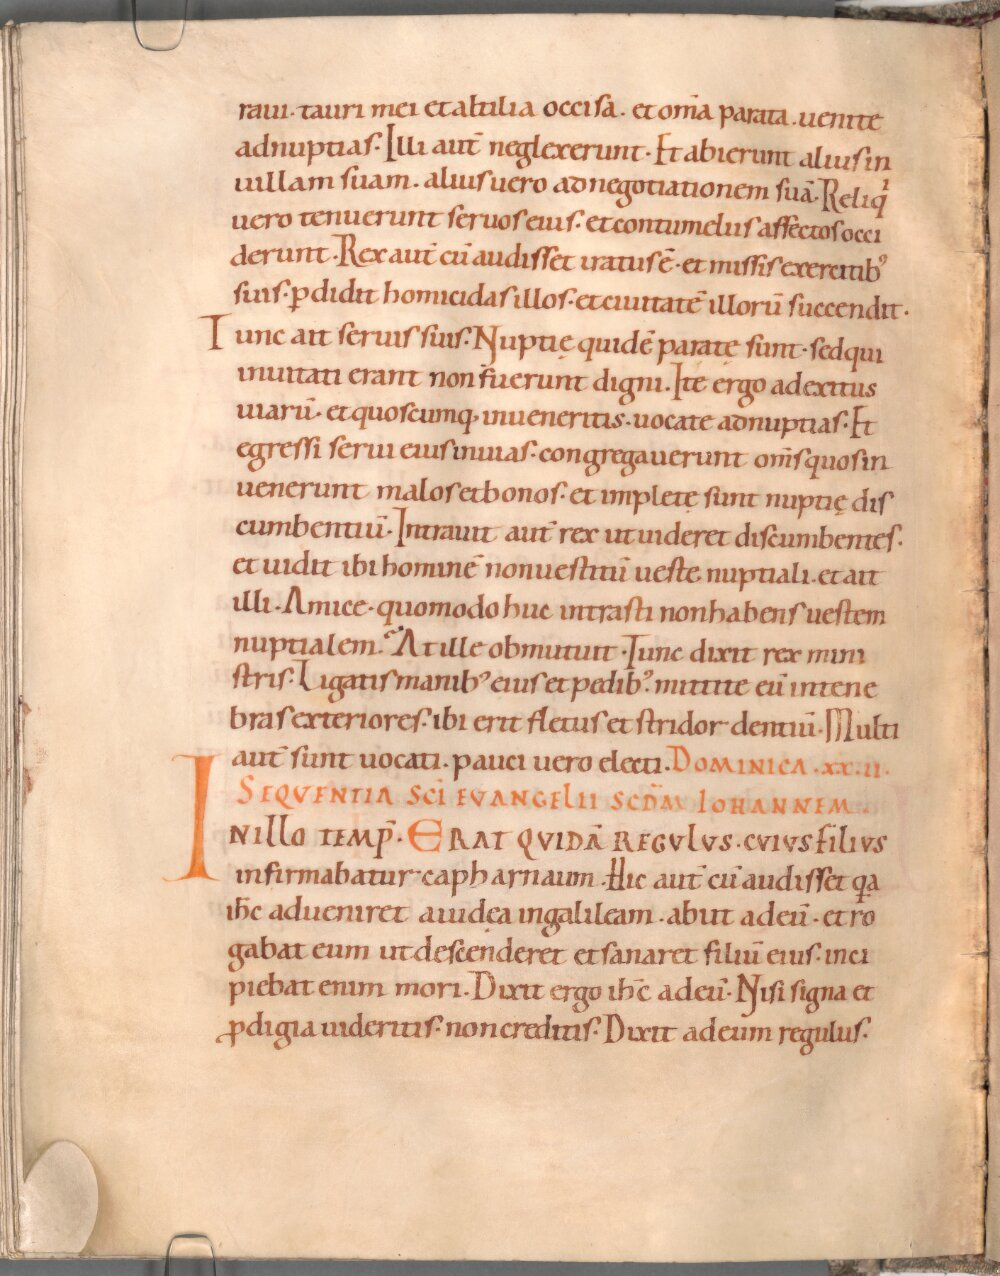 raui· tauri mei et altilia occisa· et om̄a parata· uenite
adnuptias· Illi aut̄ neglexerunt· Et abierunt aliusin
uillam suam· aliusuero adnegotiationem suā· Reliqͥ
uero tenuerunt seruoseius· etcontumeliis affectosocci
derunt· Rex aut̄ cū audisset iratus ē· et missis exercitibꝰ
suis· ꝑdidit homicidas illos· etciuitatē illorū succendit·
Tunc ait seruis suis· Nuptię quidē paratę sunt· sedqui
inuitati erant non fuerunt digni· Ite ergo adexitus
uiarū· etquoscumq; inueneritis· uocate adnuptias· Et
egressi serui eius inuias· congregauerunt om̄s quosin
uenerunt malos etbonos· et impletę sunt nuptię dis
cumbentiū· Intrauit aut̄ rex ut uideret discumbentes·
et uidit ibi hominē nonuestitū ueste nuptiali· et ait
illi· Amice· quomodo huc intrasti nonhabens uestem
nuptialem· At ille obmutuit· Tunc dixit rex mini
stris· Ligatis manibꝰ eius et pedibꝰ· mittite eū intene
bras exteriores· ibi erit fletus et stridor dentiū· Multi
aut̄ sunt uocati· pauci uero electi· DOMINICA ·XX·II·
SEQVENTIA SC̄I EVANGELII SCD̄M IOHANNEM
INILLO TEMP̄· ERAT QVIDĀ REGVLVS· CVIVS FILIVS
infirmabatur capharnaum· Hic aut̄ cū audisset qꝛa
ih̄c adueniret aiudęa ingalileam· abiit ad eū· et ro
gabat eum ut descenderet et sanaret filiū eius· inci
piebat enim mori· Dixit ergo ih̄c ad eū· Nisi signa et
ꝓdigia uideritis· non creditis· Dixit ad eum regulus·